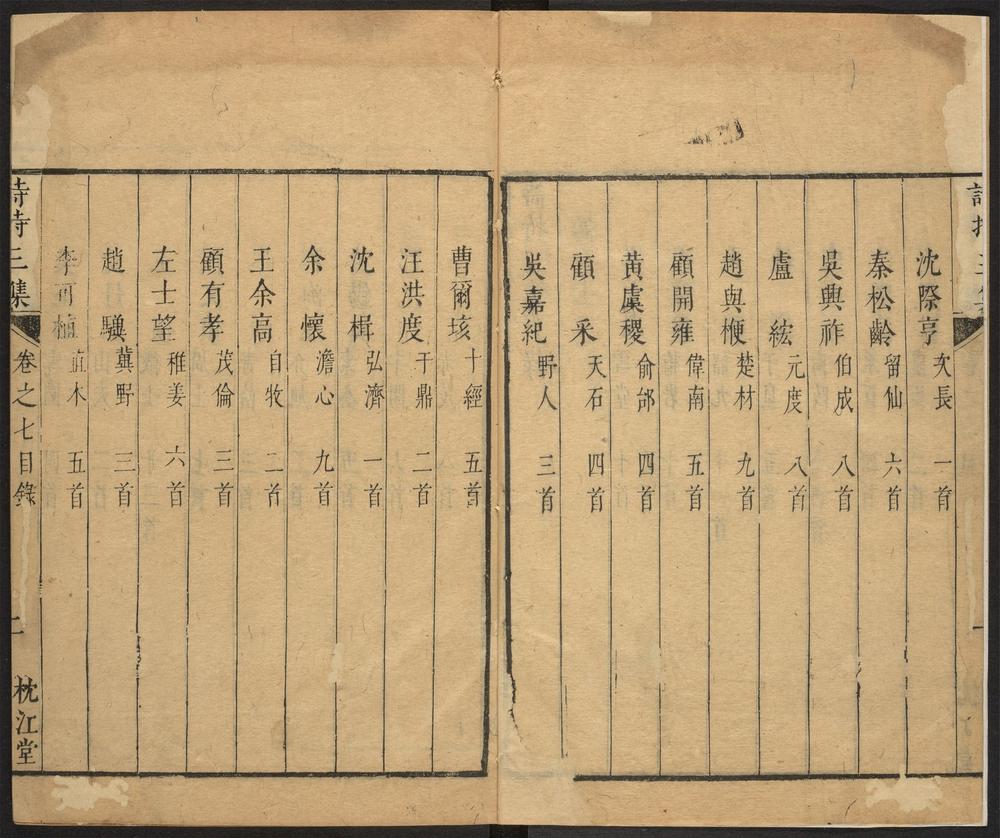 沈際亨 次長 一首
秦松齡 留仙 六首
吳興祚 伯成 八首
盧綋 元度 八首
趙與楩 楚材 九首
顧開雍 偉南 五首
黃虞稷 俞邰 四首
顧采 天石 四首
吳嘉紀 野人 三首
曹爾垓 十經 五首
汪洪度 于鼎 二首
沈楫 弘濟 一首
余懷 澹心 九首
王余高 自牧 二首
顧有孝 茂倫 三首
左士望 稚姜 六首
趙驥 冀野 三首
李可植 直木 五首
詩持三集 卷之七目錄 二 枕江堂